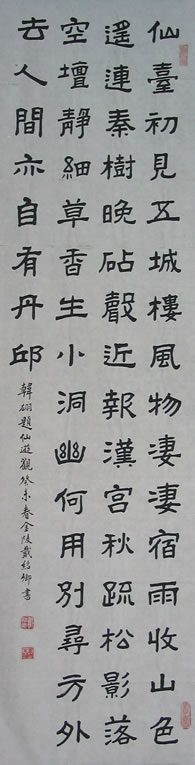 仙臺初見五城樓風物淒淒宿雨收山色
遙連秦樹晚砧聲近報漢宮秋疏松影落
空壇靜細草香生小洞幽何用別尋方外
去人間亦自有丹邱
韓翃題仙遊觀癸未春金陵戴紹卿書